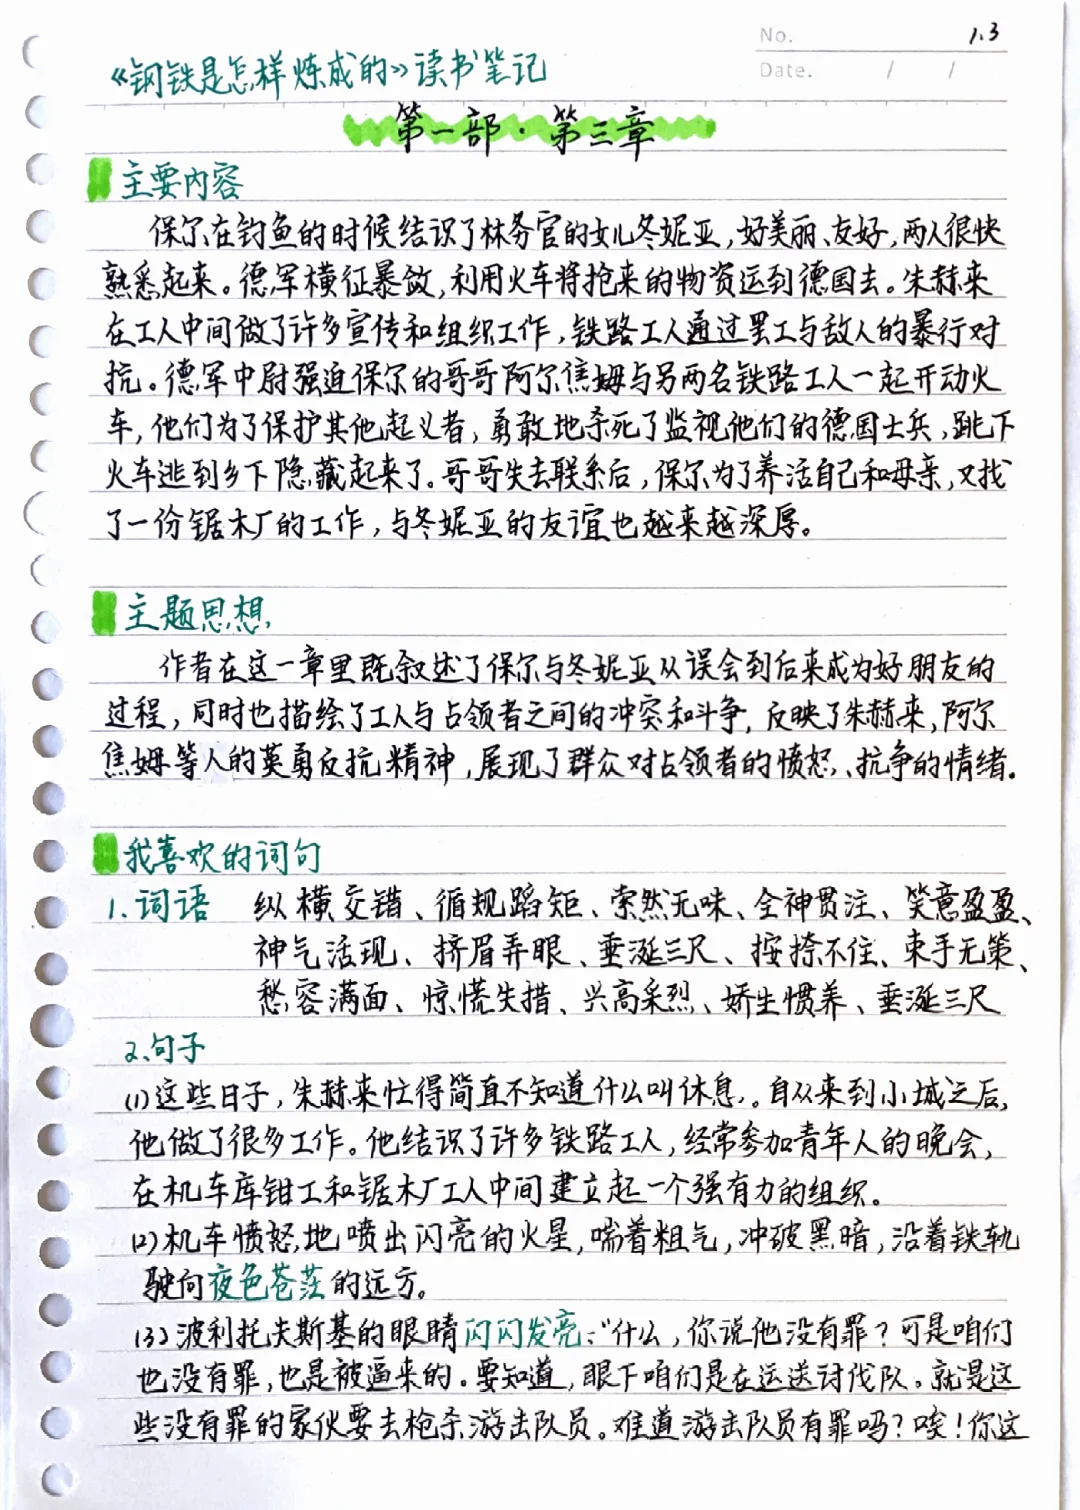 No. 1.3
Date. / /
《钢铁是怎样炼成的》读书笔记
第一部·第三章
主要内容
保尔在钓鱼的时候结识了林务官的女儿冬妮亚,好美丽、友好,两人很快
熟悉起来。德军横征暴敛,利用火车将抢来的物资运到德国去。朱赫来
在工人中间做了许多宣传和组织工作,铁路工人通过罢工与敌人的暴行对
抗。德军中尉强迫保尔的哥哥阿尔焦姆与另两名铁路工人一起开动火
车,他们为了保护其他起义者,勇敢地杀死了监视他们的德国士兵,跳下
火车逃到乡下隐藏起来了。哥哥失去联系后,保尔为了养活自己和母亲,又找
了一份锯木厂的工作,与冬妮亚的友谊也越来越深厚。
主题思想
作者在这一章里既叙述了保尔与冬妮亚从误会到后来成为好朋友的
过程,同时也描绘了工人与占领者之间的冲突和斗争,反映了朱赫来,阿尔
焦姆等人的英勇反抗精神,展现了群众对占领者的愤怒、抗争的情绪.
我喜欢的词句
1.词语 纵横交错、循规蹈矩、索然无味、全神贯注、笑意盈盈、
神气活现、挤眉弄眼、垂涎三尺、按捺不住、束手无策、
愁容满面、惊慌失措、兴高采烈、娇生惯养、垂涎三尺
2.句子
(1)这些日子,朱赫来忙得简直不知道什么叫休息。自从来到小城之后,
他做了很多工作。他结识了许多铁路工人,经常参加青年人的晚会,
在机车库钳工和锯木厂工人中间建立起一个强有力的组织。
(2)机车愤怒地喷出闪亮的火星,喘着粗气,冲破黑暗,沿着铁轨
驶向夜色苍茫的远方。
(3)波利托夫斯基的眼睛闪闪发亮:“什么,你说他没有罪?可是咱们
也没有罪,也是被逼来的。要知道,眼下咱们是在运送讨伐队。就是这
些没有罪的家伙要去枪杀游击队员。难道游击队员有罪吗?唉!你这